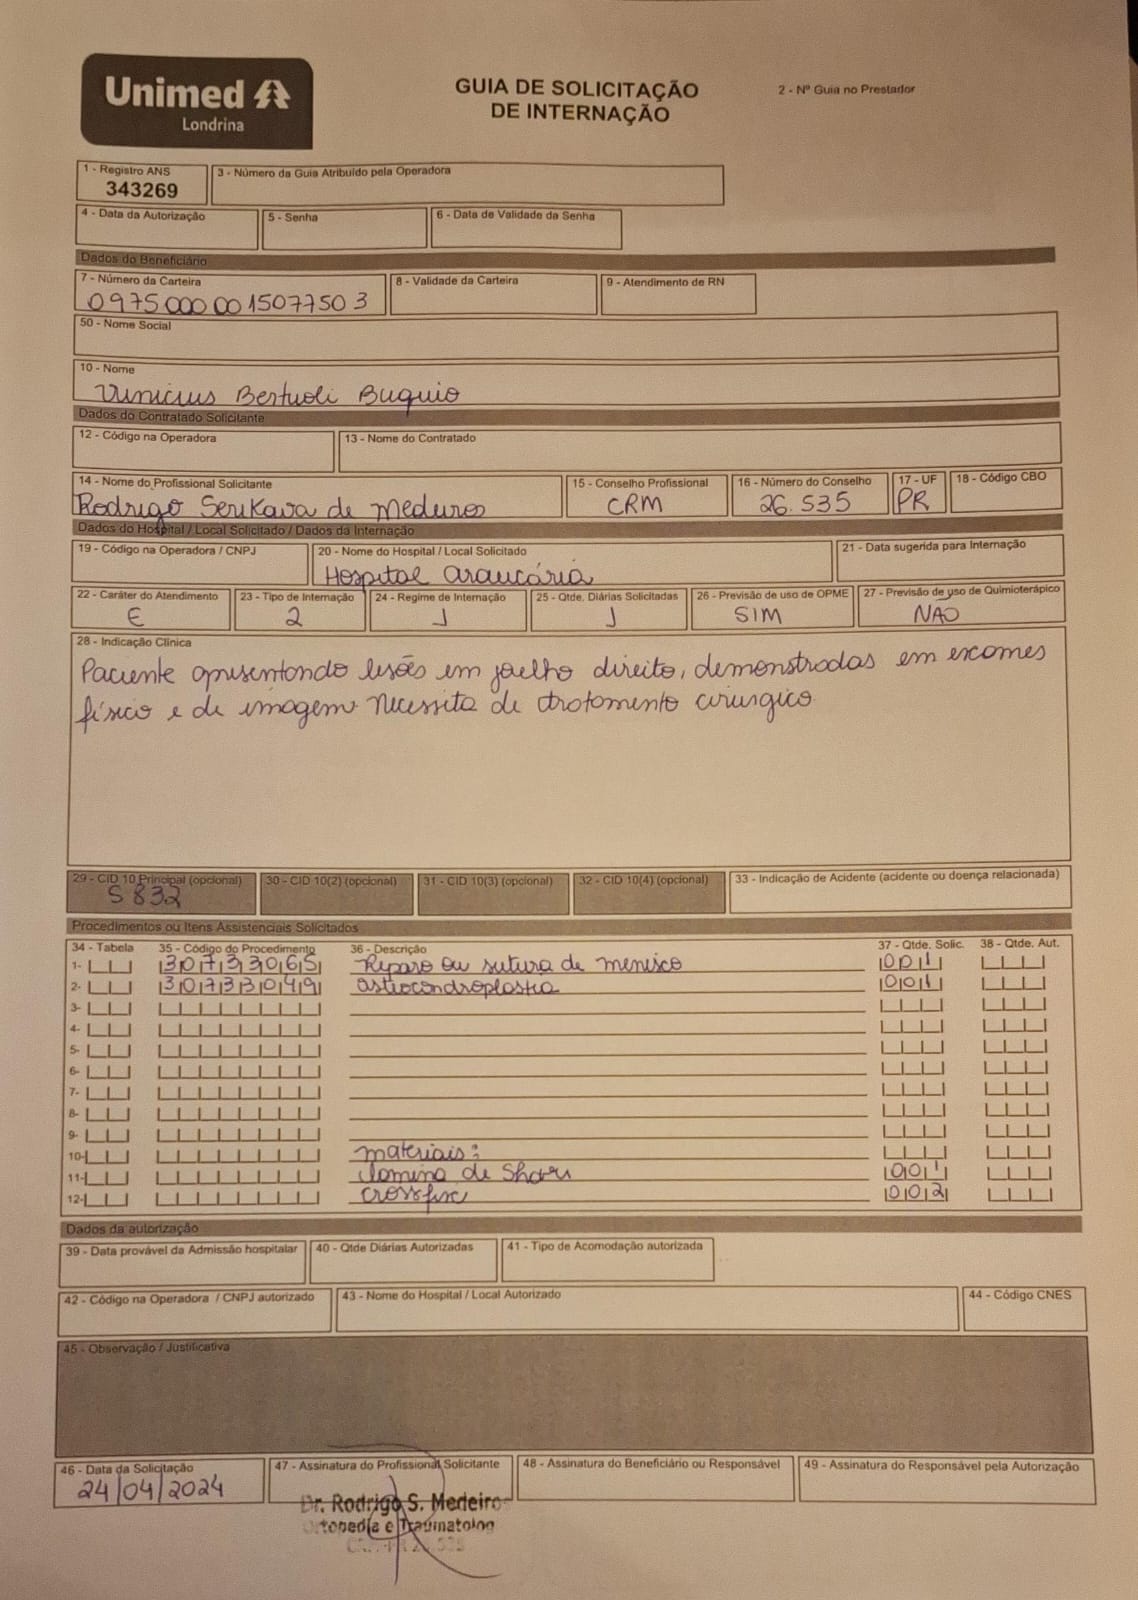 Unimed
Londrina
GUIA DE SOLICITAÇÃO
DE INTERNAÇÃO
2 - Nº Guia no Prestador
1 - Registro ANS
343269
3 - Número da Guia Atribuído pela Operadora
4 - Data da Autorização
5 - Senha
6 - Data de Validade da Senha
Dados do Beneficiário
7 - Número da Carteira
0975 000 00 1507750 3
8 - Validade da Carteira
9 - Atendimento de RN
50 - Nome Social
10 - Nome
Vinicius Bertuoli Buquio
Dados do Contratado Solicitante
12 - Código na Operadora
13 - Nome do Contratado
14 - Nome do Profissional Solicitante
Rodrigo Serikava de Medeiros
15 - Conselho Profissional
CRM
16 - Número do Conselho
26.535
17 - UF
PR
18 - Código CBO
Dados do Hospital / Local Solicitado / Dados da Internação
19 - Código na Operadora / CNPJ
20 - Nome do Hospital / Local Solicitado
Hospital araucária
21 - Data sugerida para Internação
22 - Caráter do Atendimento
E
23 - Tipo de Internação
2
24 - Regime de Internação
1
25 - Qtde. Diárias Solicitadas
1
26 - Previsão de uso de OPME
SIM
27 - Previsão de uso de Quimioterápico
NAO
28 - Indicação Clínica
Paciente apresentando lesões em joelho direito, demonstradas em exames
físico e de imagem. Necessita de tratamento cirurgico.
29 - CID 10 Principal (opcional)
S 832
30 - CID 10(2) (opcional)
31 - CID 10(3) (opcional)
32 - CID 10(4) (opcional)
33 - Indicação de Acidente (acidente ou doença relacionada)
Procedimentos ou Itens Assistenciais Solicitados
34 - Tabela 35 - Código do Procedimento 36 - Descrição 37 - Qtde. Solic. 38 - Qtde. Aut.
1- 30733065 Reparo ou sutura de menisco 001
2- 30733049 osteocondroplastia 001
3-
4-
5-
6-
7-
8-
9-
10- materiais:
11- lamina de Shaver 001
12- crossfix 002
Dados da autorização
39 - Data provável da Admissão hospitalar
40 - Qtde Diárias Autorizadas
41 - Tipo de Acomodação autorizada
42 - Código na Operadora / CNPJ autorizado
43 - Nome do Hospital / Local Autorizado
44 - Código CNES
45 - Observação / Justificativa
46 - Data da Solicitação
24/04/2024
47 - Assinatura do Profissional Solicitante
48 - Assinatura do Beneficiário ou Responsável
49 - Assinatura do Responsável pela Autorização
Dr. Rodrigo S. Medeiros
Ortopedia e Traumatolog